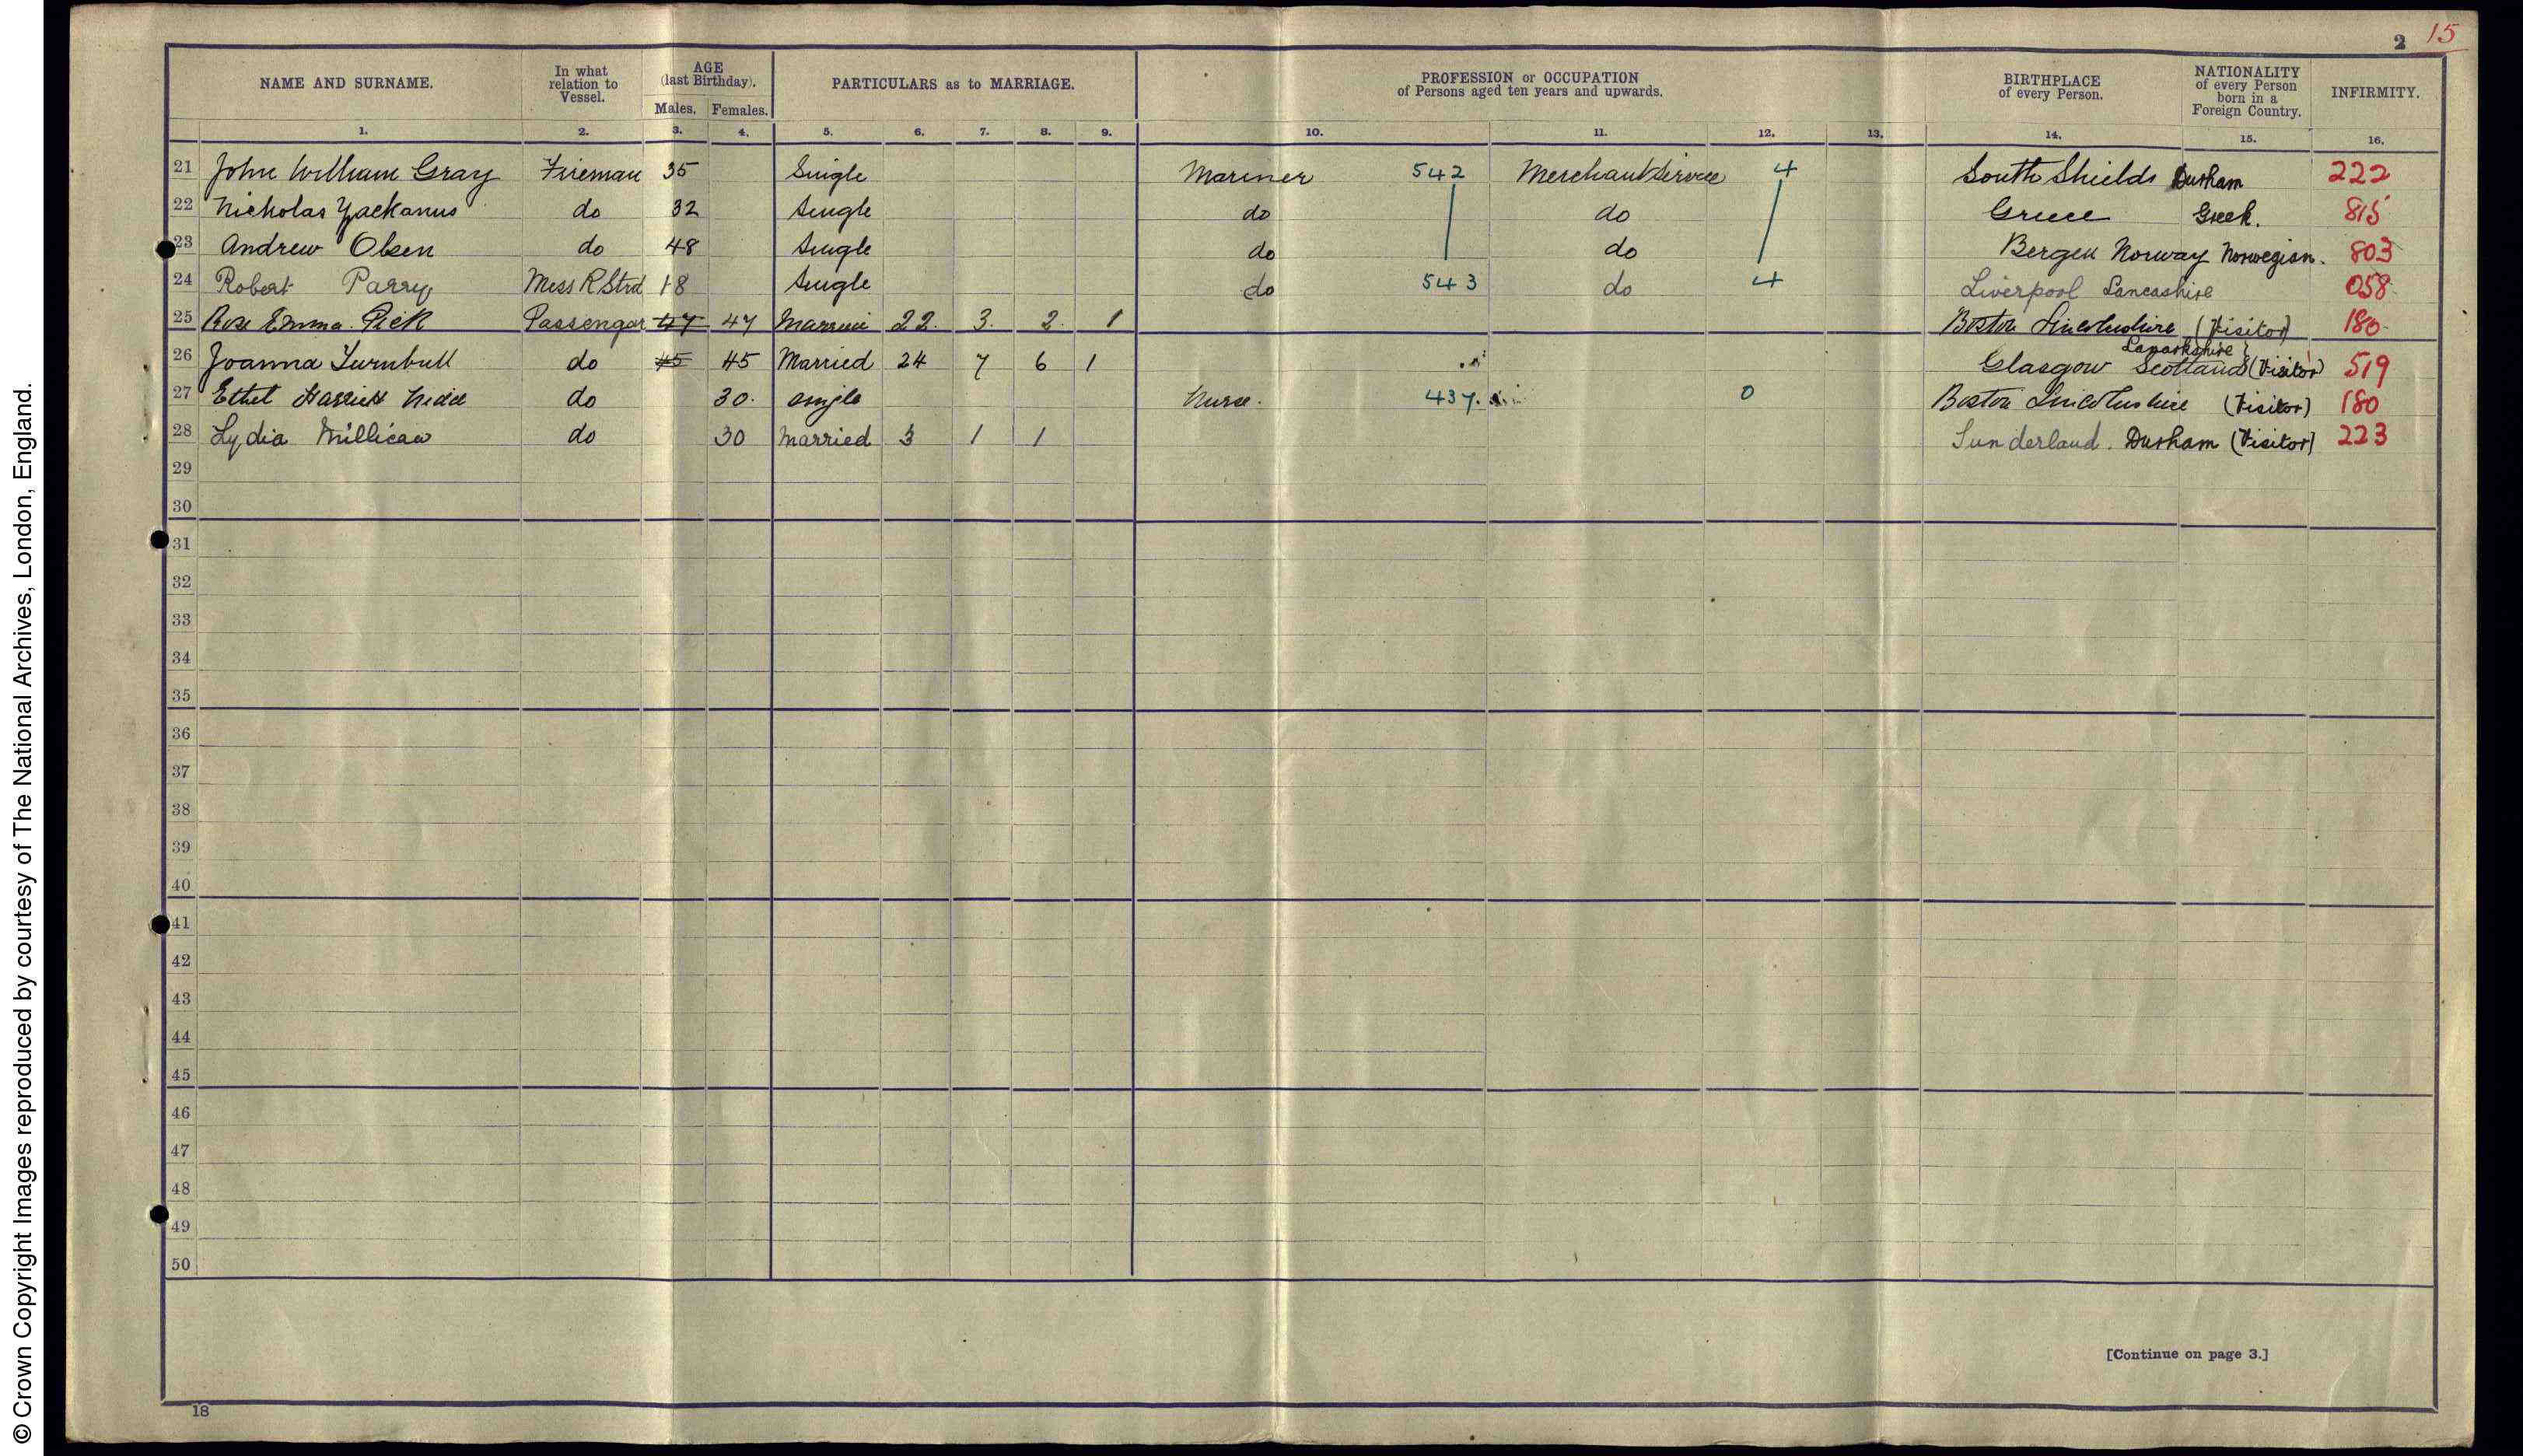 2 15
NAME AND SURNAME. In what relation to Vessel. AGE (last Birthday). Males. Females. PARTICULARS as to MARRIAGE. PROFESSION or OCCUPATION of Persons aged ten years and upwards. BIRTHPLACE of every Person. NATIONALITY of every Person born in a Foreign Country. INFIRMITY.
1. 2. 3. 4. 5. 6. 7. 8. 9. 10. 11. 12. 13. 14. 15. 16.
21 John William Gray Fireman 35 Single Mariner 542 Merchant Service 4 South Shields Durham 222
22 Nicholas Yackanus do 32 Single do do Greece Greek. 815
23 Andrew Olsen do 48 Single do do Bergen Norway Norwegian. 803
24 Robert Parry Mess R Strd 18 Single do 543 do 4 Liverpool Lancashire 058
25 Rose Emma Pick Passenger 47 47 Married 22. 3. 2. 1 Boston Lincolnshire (Visitor) 180
26 Joanna Turnbull do 45 45 Married 24 7 6 1 Glasgow Lanarkshire Scotland (Visitor) 519
27 Ethel Harriett do 30. single Nurse. 437. 0 Boston Lincolnshire (Visitor) 180
28 Lydia Millican do 30 Married 3 1 1 Sunderland. Durham (Visitor) 223
29
30
31
32
33
34
35
36
37
38
39
40
41
42
43
44
45
46
47
48
49
50
[Continue on page 3.]
18
© Crown Copyright Images reproduced by courtesy of The National Archives, London, England.